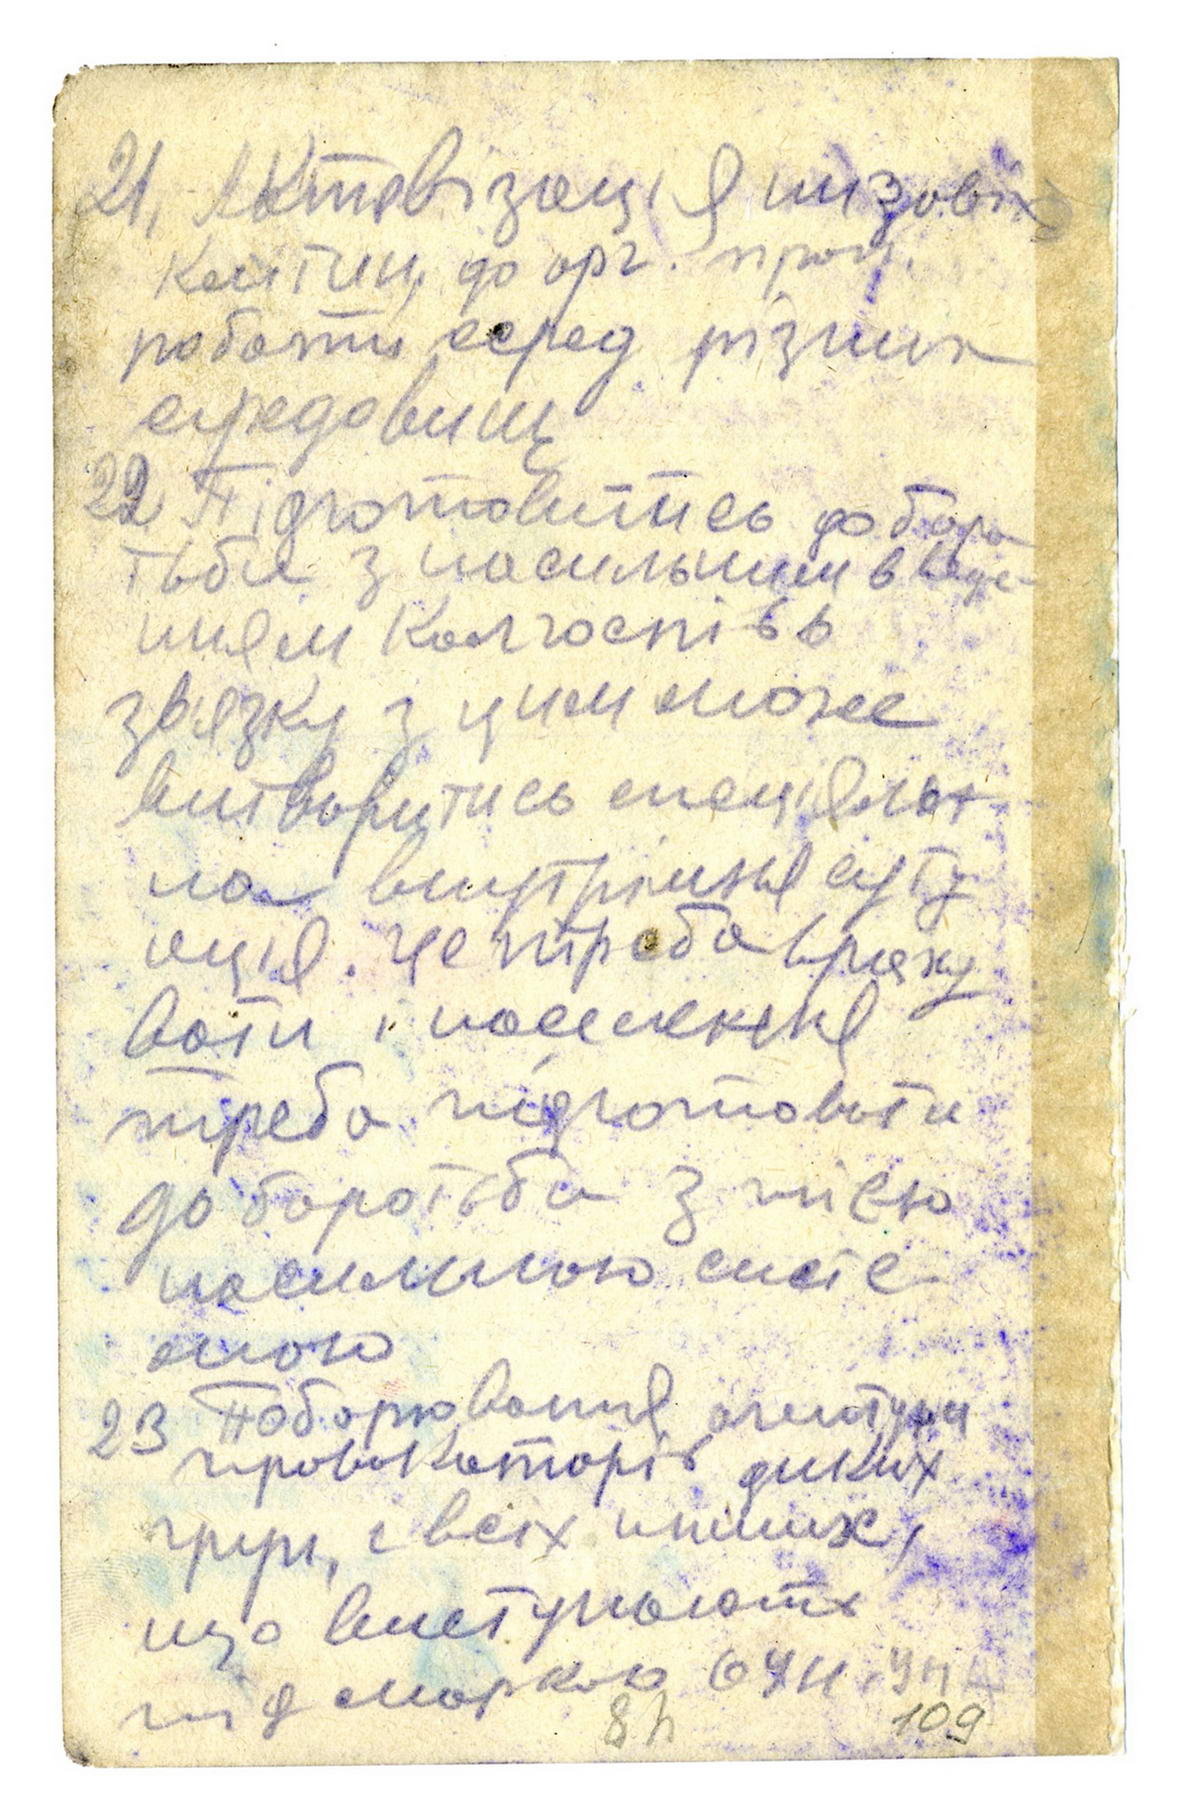 21, Активізація низових
клітин, до орг. проп.
роботи серед різних
середовищ
22 Підготовитись до боро
тьби з насильним введе
нням колгоспів в
звязку з цим може
витворитись спеціяль
на внутрішня ситу
ація. Це треба враху
вати і населення
треба підготовити
до боротьби з тією
насильною систе
мою
23 Поборювання агентури
провокаторів диких
груп, і всіх инших,
що виступають
під маркою ОУН. УПА
109